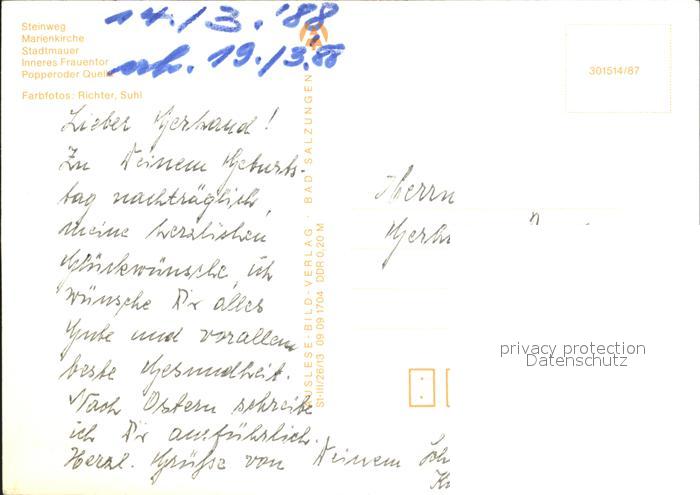 Steinweg
Marienkirche
Stadtmauer
Inneres Frauentor
Popperoder Quelle
Farbfotos: Richter, Suhl
14./3. '88
19./3.88
Lieber Gerhard!
Zu Deinem Geburts-
tag nachträglich
meine herzlichen
Glückwünsche, ich
wünsche Dir alles
Gute und vorallem
beste Gesundheit.
Nach Ostern schreibe
ich Dir ausführlich.
Herzl. Grüße von Deinem
AUSLESE-BILD-VERLAG · BAD SALZUNGEN
St-III/26/13 09 09 1704 DDR 0,20 M
301514/87
Herrn
Gerh
privacy protection
Datenschutz